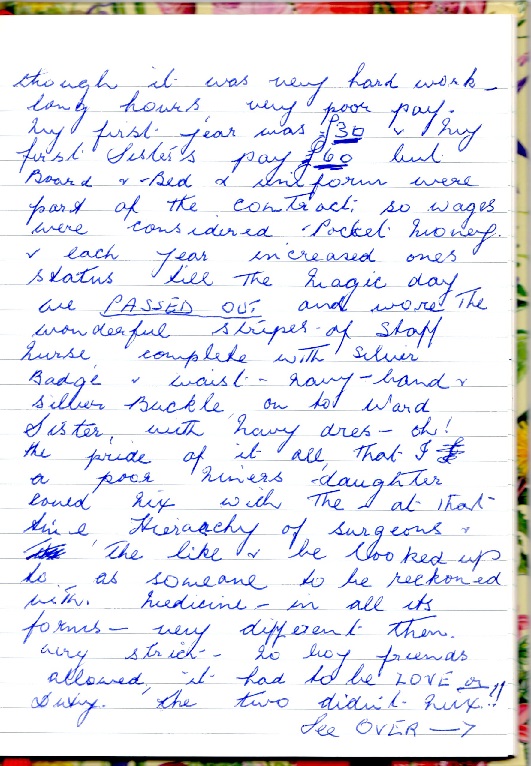 though it was very hard work -
long hours, very poor pay.
My first year was £30 & My
first Sister's pay £60 but
Board & Bed & uniform were
part of the contract, so wages
were considered Pocket Money.
& each year increased ones
status till the magic day
we PASSED OUT and wore the
wonderful stripes of Staff
Nurse, complete with silver
Badge & waist - navy - band &
silver Buckle, on to Ward
Sister, with Navy dres - oh!
the pride of it all, that I
a poor miners daughter
could mix with the - at that
time, Hieraachy of surgeons &
the like & be looked up
to as someone to be reckoned
with. Medicine - in all its
forms - very different then.
very strict - no boy friends
allowed, it had to be LOVE or
Duty. the two didn't mix!!
See OVER →